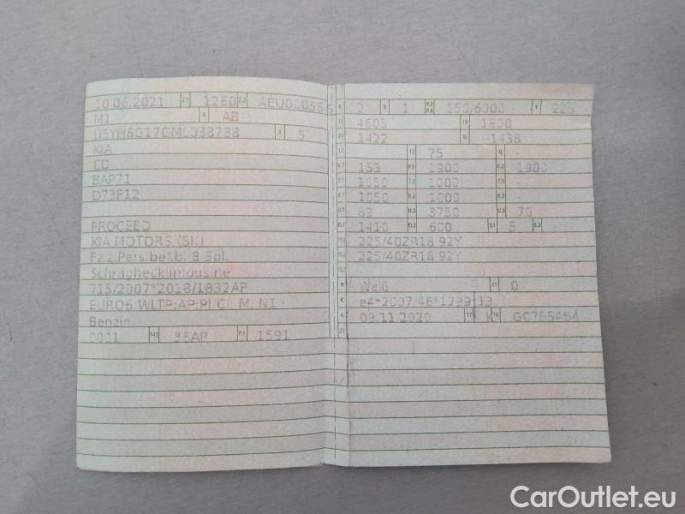 10.06.2021 1260
M1 AB
5
KIA
CD
BAP71
D73F12
PROCEED
KIA MOTORS (SK)
Fz.z.Pers.bef.b. 8 Spl.
Schräghecklimousine
715/2007*2018/1832AP
EURO6 WLTP
Benzin
0001 36AP 1591
2 1 150/6000 225
4605 1800
1422 -1438
75 -
153 1900 1900
1050 1000 -
1050 1000 -
83 3750 70
1410 600 5 -
225/40ZR18 92Y
225/40ZR18 92Y
Weiß 0
e4*2007/46*1299*13
09.11.2020 K
CarOutlet.eu